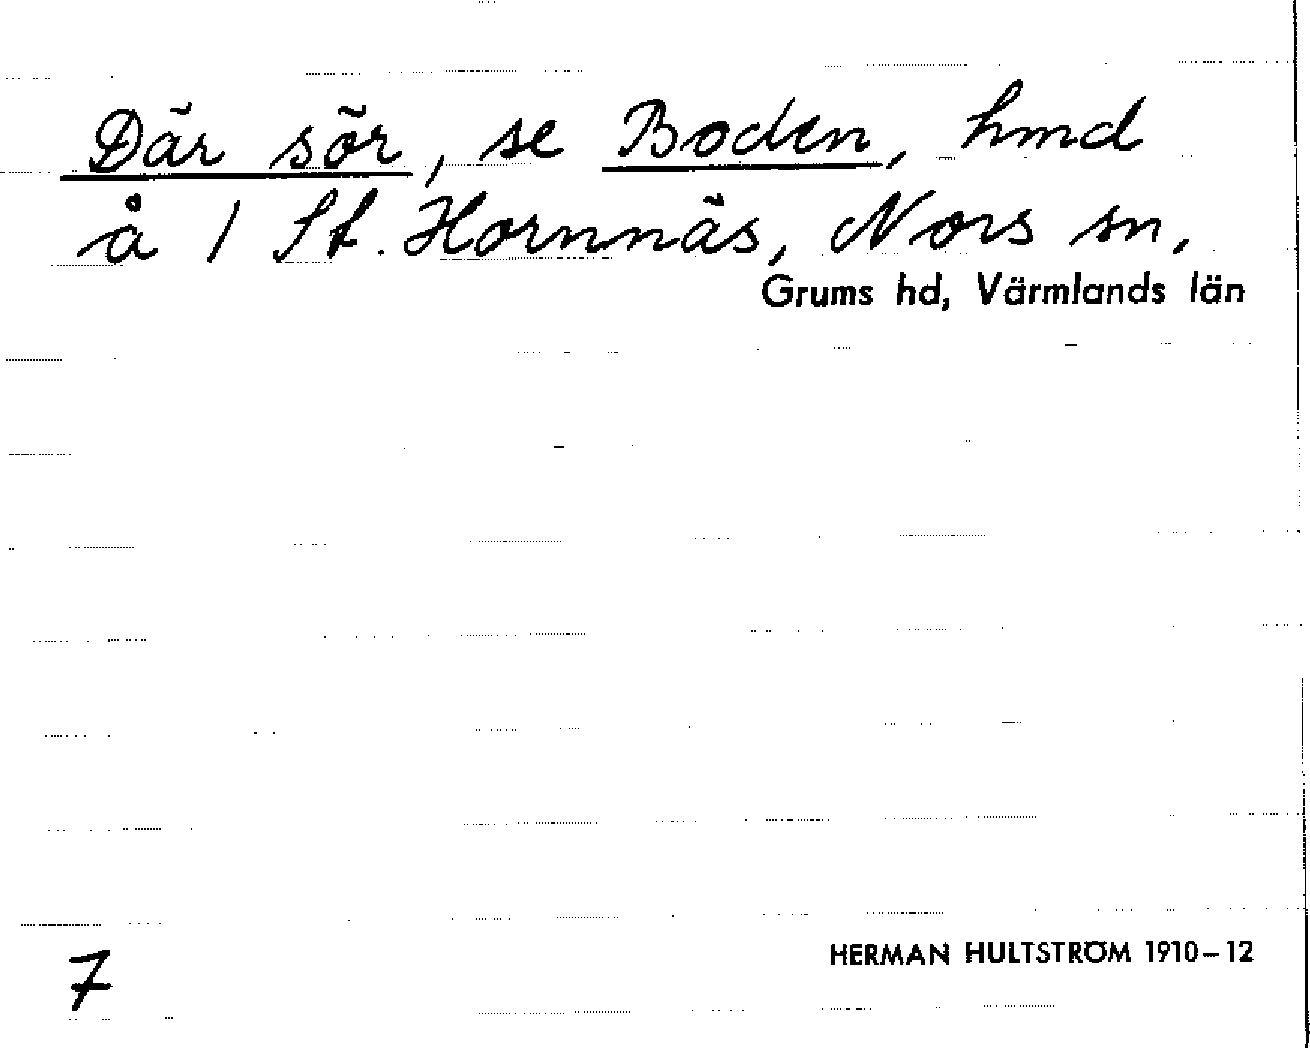 Där sör, se Boden, hmd
å 1 St. Hornnäs, Nors sn,
Grums hd, Värmlands län
7
HERMAN HULTSTRÖM 1910–12